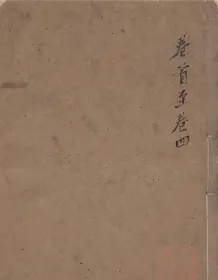 卷首至卷四